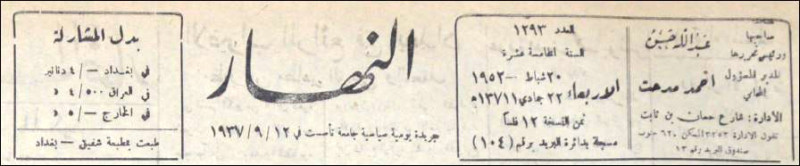 صاحبها
ورئيس تحريرها
عبد الله حسين
المدير المسؤول
المحامي
احمد مدحت
الادارة: شارع حسان بن ثابت
تلفون الادارة ٣٢٥٣ السكن ٦٢٠ جنوب
صندوق البريد رقم ١٣
العدد ١٢٩٣
السنة الخامسة عشرة
الاربعاء
٢٠ شباط - ١٩٥٢
٢٢ جمادي ١٣٧١١م
ثمن النسخة ١٢ فلساً
مسجلة بدائرة البريد برقم (١٠٤)
النهار
جريدة يومية سياسية جامعة تأسست في ١٢/٩/١٩٣٧
بدل المشاركة
في بغداد -/٤ دنانير
في العراق ٥٠٠/٤ د
في الخارج -/٥ د
طبعت بمطبعة شفيق - بغداد